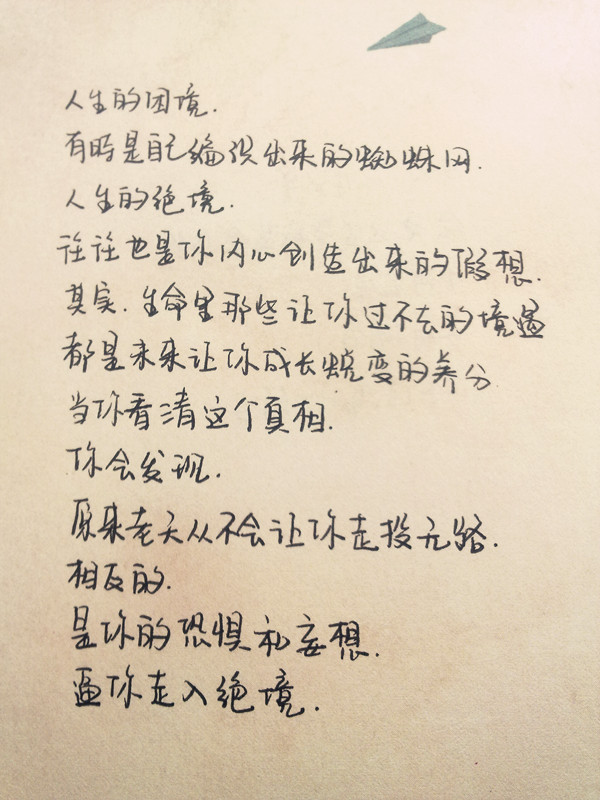 人生的困境.
有时是自己编织出来的蜘蛛网.
人生的绝境.
往往也是你内心创造出来的假想.
其实.生命里那些让你过不去的境遇
都是未来让你成长蜕变的养分
当你看清这个真相.
你会发现.
原来老天从不会让你走投无路.
相反的.
是你的恐惧和妄想.
逼你走入绝境.